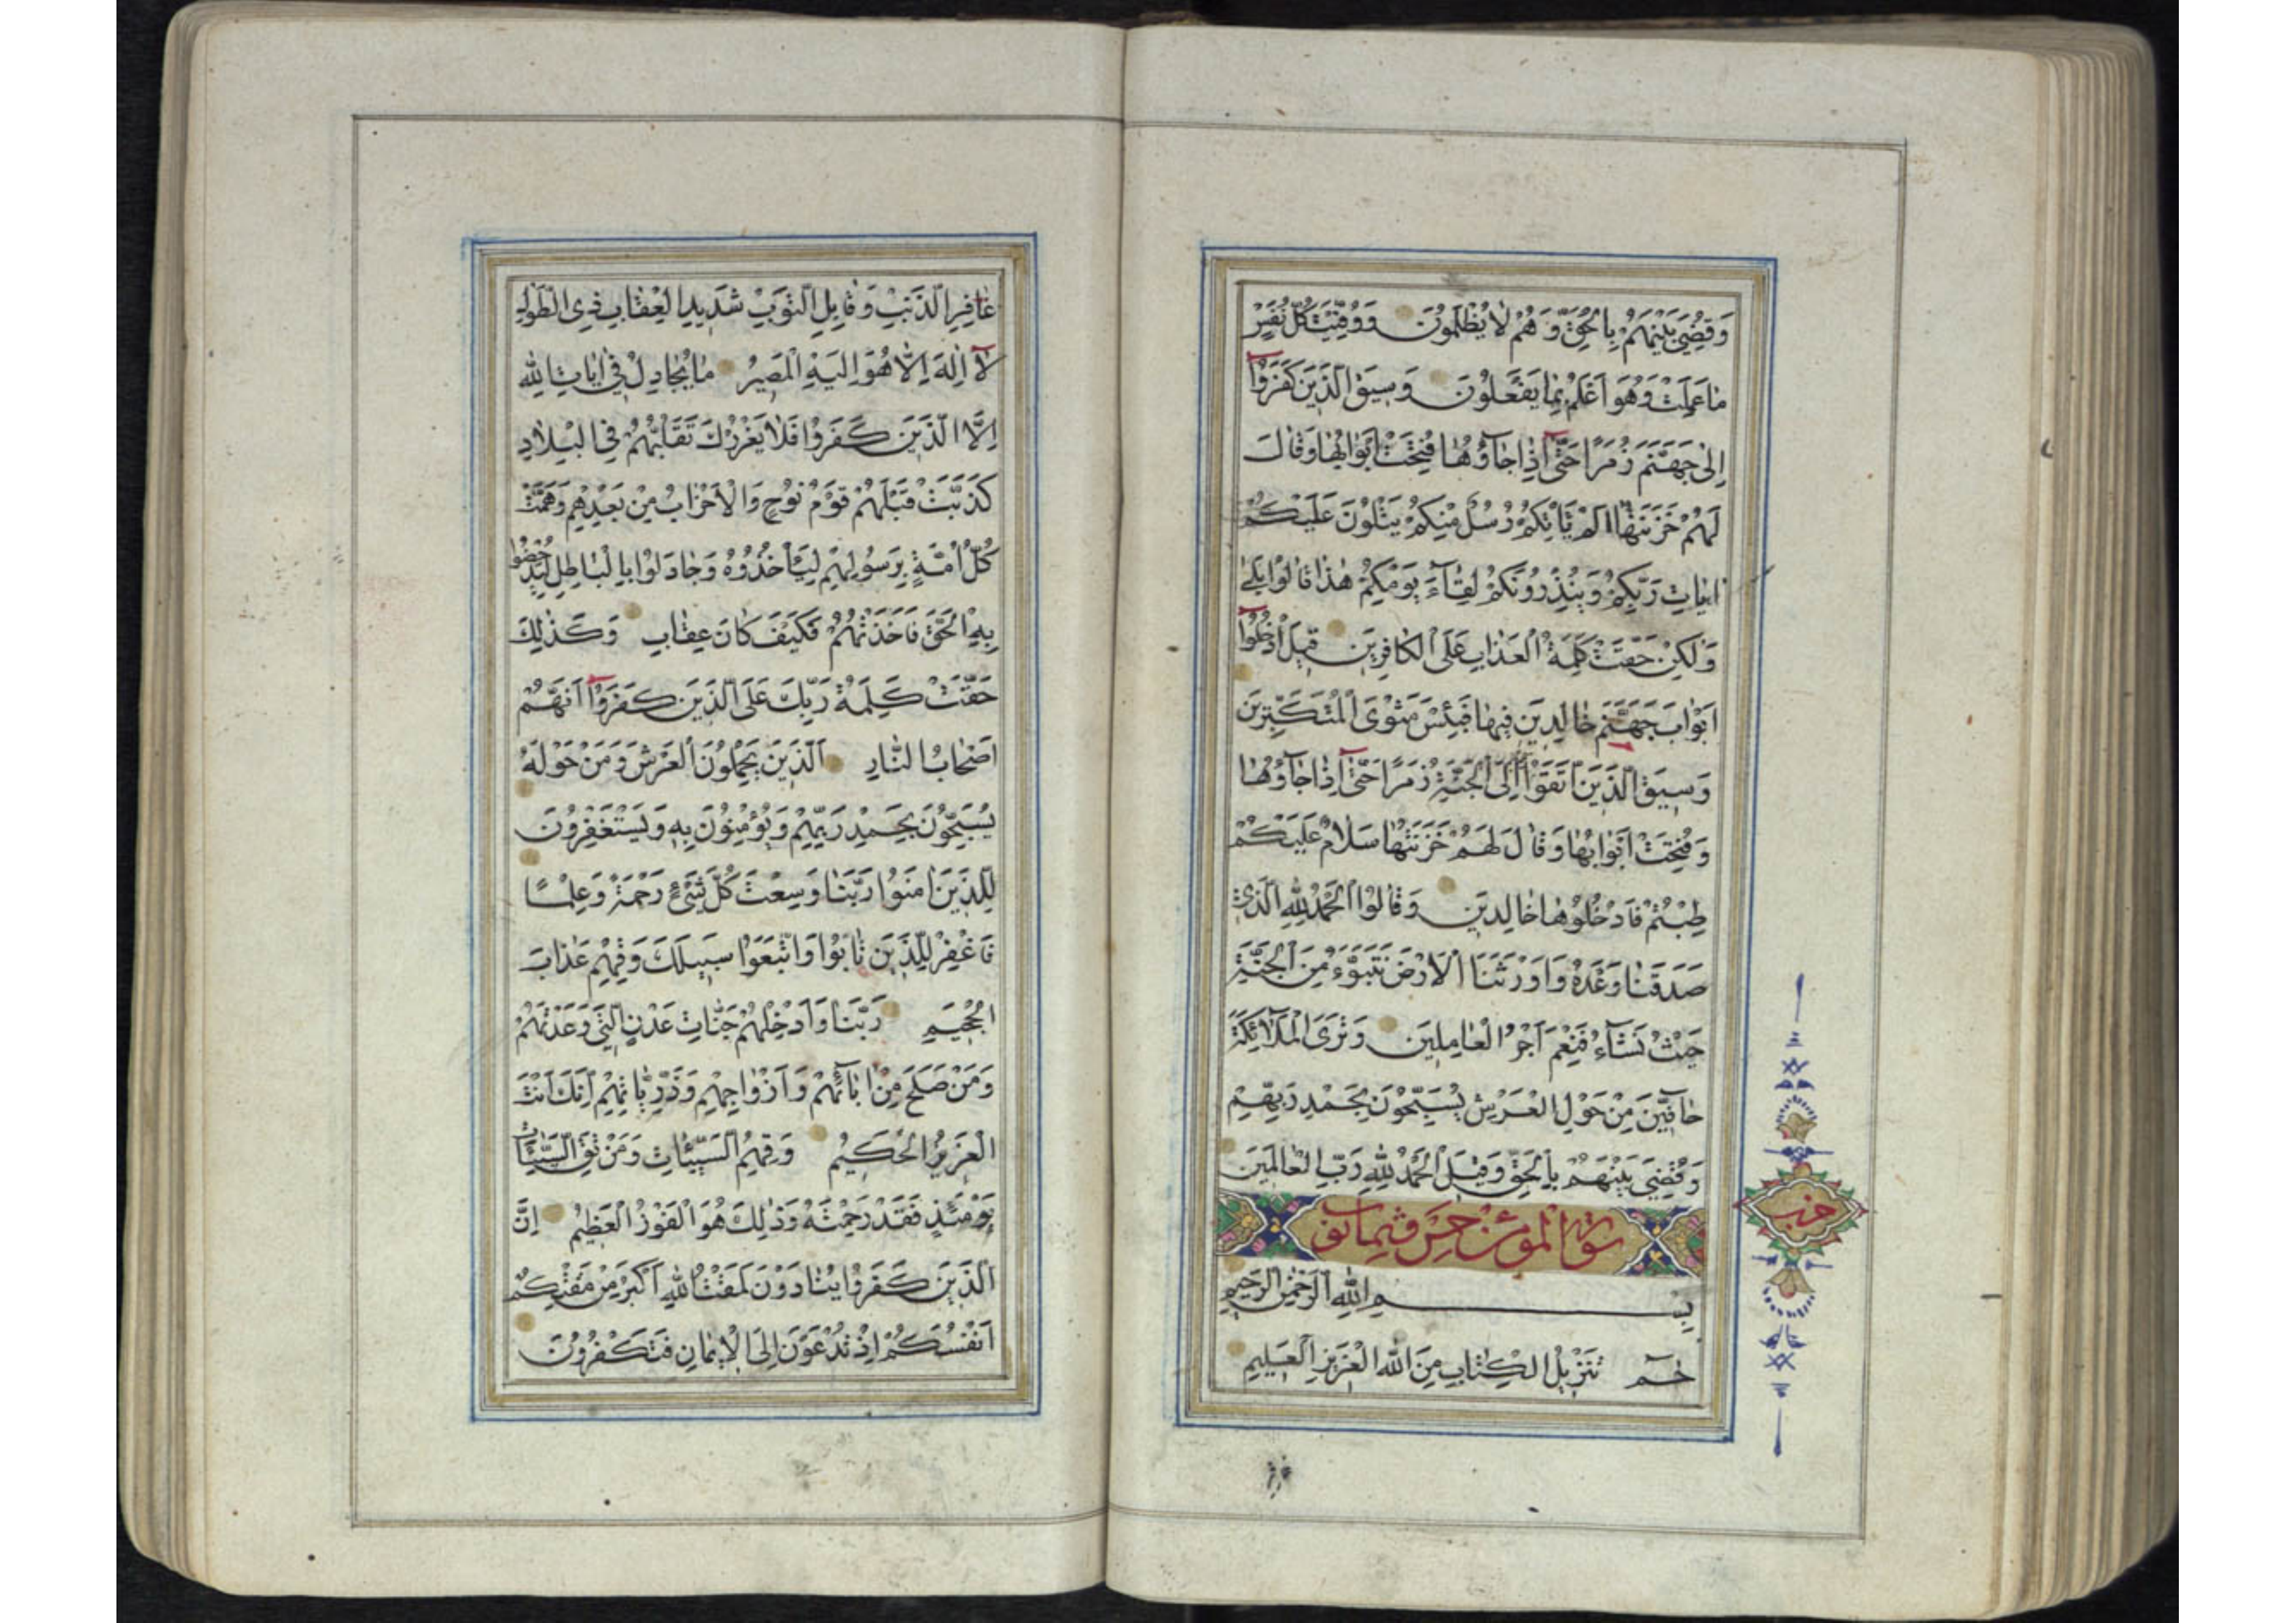 وَقُضِيَ بَيْنَهُمْ بِالْحَقِّ وَهُمْ لَا يُظْلَمُونَ وَوُفِّيَتْ كُلُّ نَفْسٍ
مَا عَمِلَتْ وَهُوَ أَعْلَمُ بِمَا يَفْعَلُونَ وَسِيقَ الَّذِينَ كَفَرُوا
إِلَىٰ جَهَنَّمَ زُمَرًا حَتَّىٰ إِذَا جَاؤُهَا فُتِحَتْ أَبْوَابُهَا وَقَالَ
لَهُمْ خَزَنَتُهَا أَلَمْ يَأْتِكُمْ رُسُلٌ مِنْكُمْ يَتْلُونَ عَلَيْكُمْ
آيَاتِ رَبِّكُمْ وَيُنْذِرُونَكُمْ لِقَاءَ يَوْمِكُمْ هَٰذَا قَالُوا بَلَىٰ
وَلَٰكِنْ حَقَّتْ كَلِمَةُ الْعَذَابِ عَلَى الْكَافِرِينَ قِيلَ ادْخُلُوا
أَبْوَابَ جَهَنَّمَ خَالِدِينَ فِيهَا فَبِئْسَ مَثْوَى الْمُتَكَبِّرِينَ
وَسِيقَ الَّذِينَ اتَّقَوْا إِلَى الْجَنَّةِ زُمَرًا حَتَّىٰ إِذَا جَاؤُهَا
وَفُتِحَتْ أَبْوَابُهَا وَقَالَ لَهُمْ خَزَنَتُهَا سَلَامٌ عَلَيْكُمْ
طِبْتُمْ فَادْخُلُوهَا خَالِدِينَ وَقَالُوا الْحَمْدُ لِلَّهِ الَّذِي
صَدَقَنَا وَعْدَهُ وَأَوْرَثَنَا الْأَرْضَ نَتَبَوَّءُ مِنَ الْجَنَّةِ
حَيْثُ نَشَاءُ فَنِعْمَ أَجْرُ الْعَامِلِينَ وَتَرَى الْمَلَائِكَةَ
حَافِّينَ مِنْ حَوْلِ الْعَرْشِ يُسَبِّحُونَ بِحَمْدِ رَبِّهِمْ
وَقُضِيَ بَيْنَهُمْ بِالْحَقِّ وَقِيلَ الْحَمْدُ لِلَّهِ رَبِّ الْعَالَمِينَ
سورة المؤمن خمس وثمانون
بِسْمِ اللَّهِ الرَّحْمَٰنِ الرَّحِيمِ
حم تَنْزِيلُ الْكِتَابِ مِنَ اللَّهِ الْعَزِيزِ الْعَلِيمِ
حزب
غافر
غَافِرِ الذَّنْبِ وَقَابِلِ التَّوْبِ شَدِيدِ الْعِقَابِ ذِي الطَّوْلِ
لَا إِلَٰهَ إِلَّا هُوَ إِلَيْهِ الْمَصِيرُ مَا يُجَادِلُ فِي آيَاتِ اللَّهِ
إِلَّا الَّذِينَ كَفَرُوا فَلَا يَغْرُرْكَ تَقَلُّبُهُمْ فِي الْبِلَادِ
كَذَّبَتْ قَبْلَهُمْ قَوْمُ نُوحٍ وَالْأَحْزَابُ مِنْ بَعْدِهِمْ وَهَمَّتْ
كُلُّ أُمَّةٍ بِرَسُولِهِمْ لِيَأْخُذُوهُ وَجَادَلُوا بِالْبَاطِلِ لِيُدْحِضُوا
بِهِ الْحَقَّ فَأَخَذْتُهُمْ فَكَيْفَ كَانَ عِقَابِ وَكَذَٰلِكَ
حَقَّتْ كَلِمَةُ رَبِّكَ عَلَى الَّذِينَ كَفَرُوا أَنَّهُمْ
أَصْحَابُ النَّارِ الَّذِينَ يَحْمِلُونَ الْعَرْشَ وَمَنْ حَوْلَهُ
يُسَبِّحُونَ بِحَمْدِ رَبِّهِمْ وَيُؤْمِنُونَ بِهِ وَيَسْتَغْفِرُونَ
لِلَّذِينَ آمَنُوا رَبَّنَا وَسِعْتَ كُلَّ شَيْءٍ رَحْمَةً وَعِلْمًا
فَاغْفِرْ لِلَّذِينَ تَابُوا وَاتَّبَعُوا سَبِيلَكَ وَقِهِمْ عَذَابَ
الْجَحِيمِ رَبَّنَا وَأَدْخِلْهُمْ جَنَّاتِ عَدْنٍ الَّتِي وَعَدْتَهُمْ
وَمَنْ صَلَحَ مِنْ آبَائِهِمْ وَأَزْوَاجِهِمْ وَذُرِّيَّاتِهِمْ إِنَّكَ أَنْتَ
الْعَزِيزُ الْحَكِيمُ وَقِهِمُ السَّيِّئَاتِ وَمَنْ تَقِ السَّيِّئَاتِ
يَوْمَئِذٍ فَقَدْ رَحِمْتَهُ وَذَٰلِكَ هُوَ الْفَوْزُ الْعَظِيمُ إِنَّ
الَّذِينَ كَفَرُوا يُنَادَوْنَ لَمَقْتُ اللَّهِ أَكْبَرُ مِنْ مَقْتِكُمْ
أَنْفُسَكُمْ إِذْ تُدْعَوْنَ إِلَى الْإِيمَانِ فَتَكْفُرُونَ